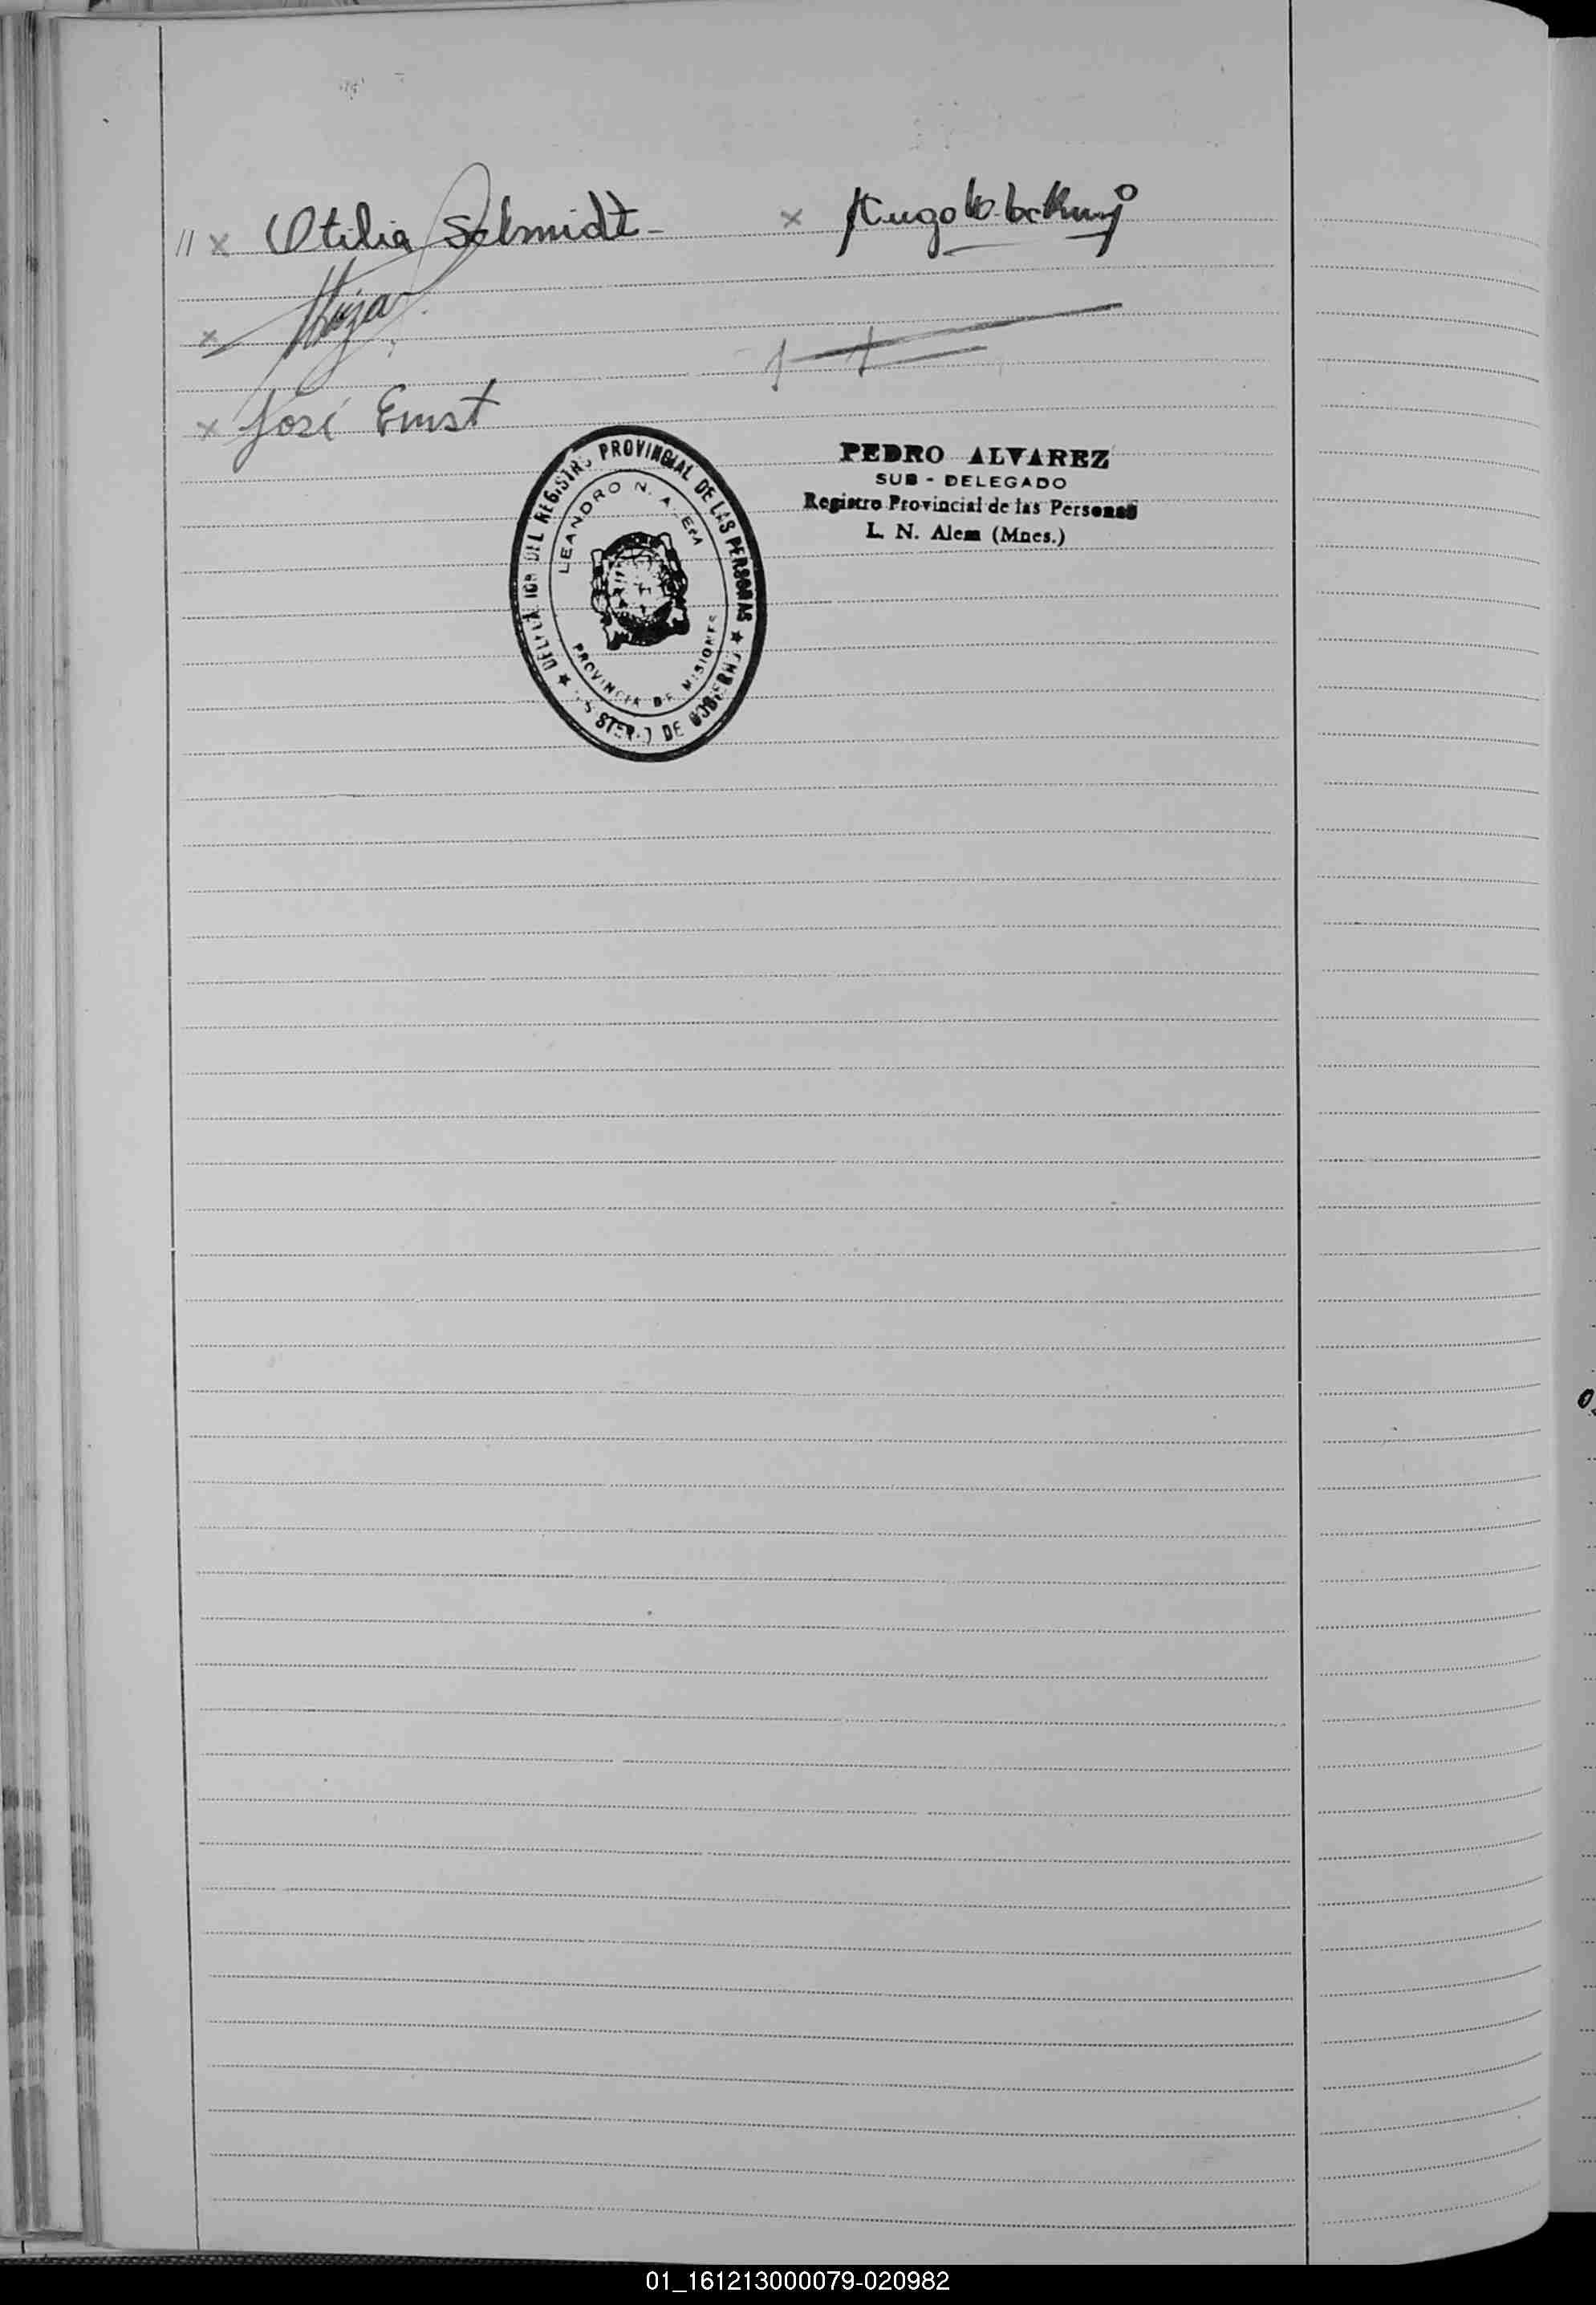 // x Otilia Schmidt - x Hugo
x Rojas
x José Ernst
DEL REGISTRO PROVINCIAL DE LAS PERSONAS
LEANDRO N. ALEM
PROVINCIA DE MISIONES
DE GOBIERNO
PEDRO ALVAREZ
SUB - DELEGADO
Registro Provincial de las Personas
L. N. Alem (Mnes.)
01_161213000079-020982